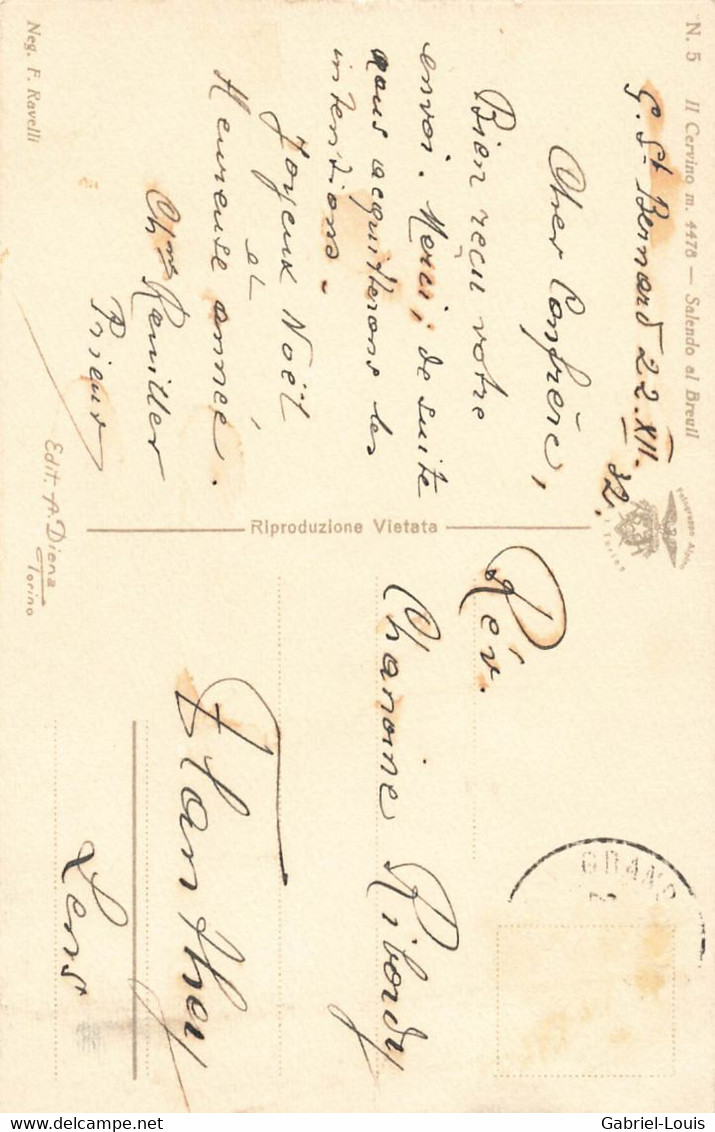 N. 5 Il Cervino m. 4478 — Salendo al Breuil
G. St Bernard 22.XII.32.
Cher Confrère,
Bien reçu votre
envoi. Merci; de suite
nous acquitterons les
intentions.
Joyeux Noël
et
Heureuse année.
Ch.ne Reuiller
Prieur
Neg. F. Ravelli
Edit. A. Diena
Torino
Riproduzione Vietata
Torino
Rév.
Chanoine Ribordy
Flanthey
Lens
GRAND
delcampe.net
Gabriel-Louis